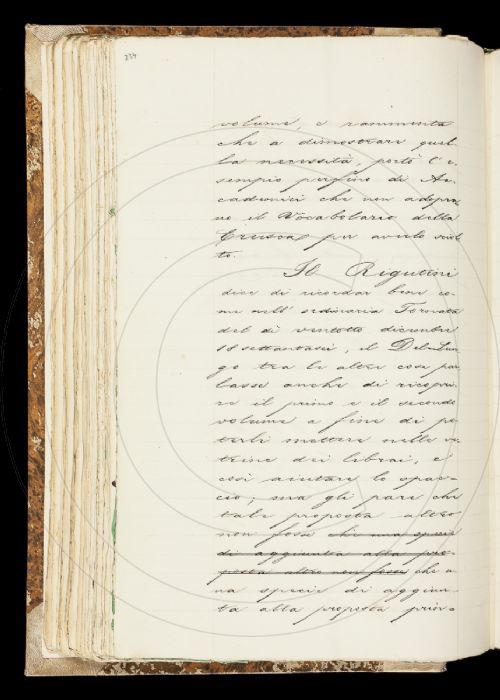 234
volume, e rammenta
che a dimostrare quel-
la necessità, portò l'e-
sempio perfino di Ac-
cademici che non adopra-
no il Vocabolario della
Crusca, per averlo sciol-
to.
Il Rigutini
dice di ricordar bene co-
me nell'ordinaria Tornata
del dì ventotto dicembre
18settantasei, il Del-Lun-
go tra le altre cose par-
lasse anche di ricopri-
re il primo e il secondo
volume a fine di po-
terli mettere nelle ve-
trine dei librai, e
così aiutare lo spac-
cio; ma gli pare che
tale proposta altro
non fosse che una specie
di aggiunta alla pro-
posta altro non fosse che u-
na specie di aggiun-
ta alla proposta prin-